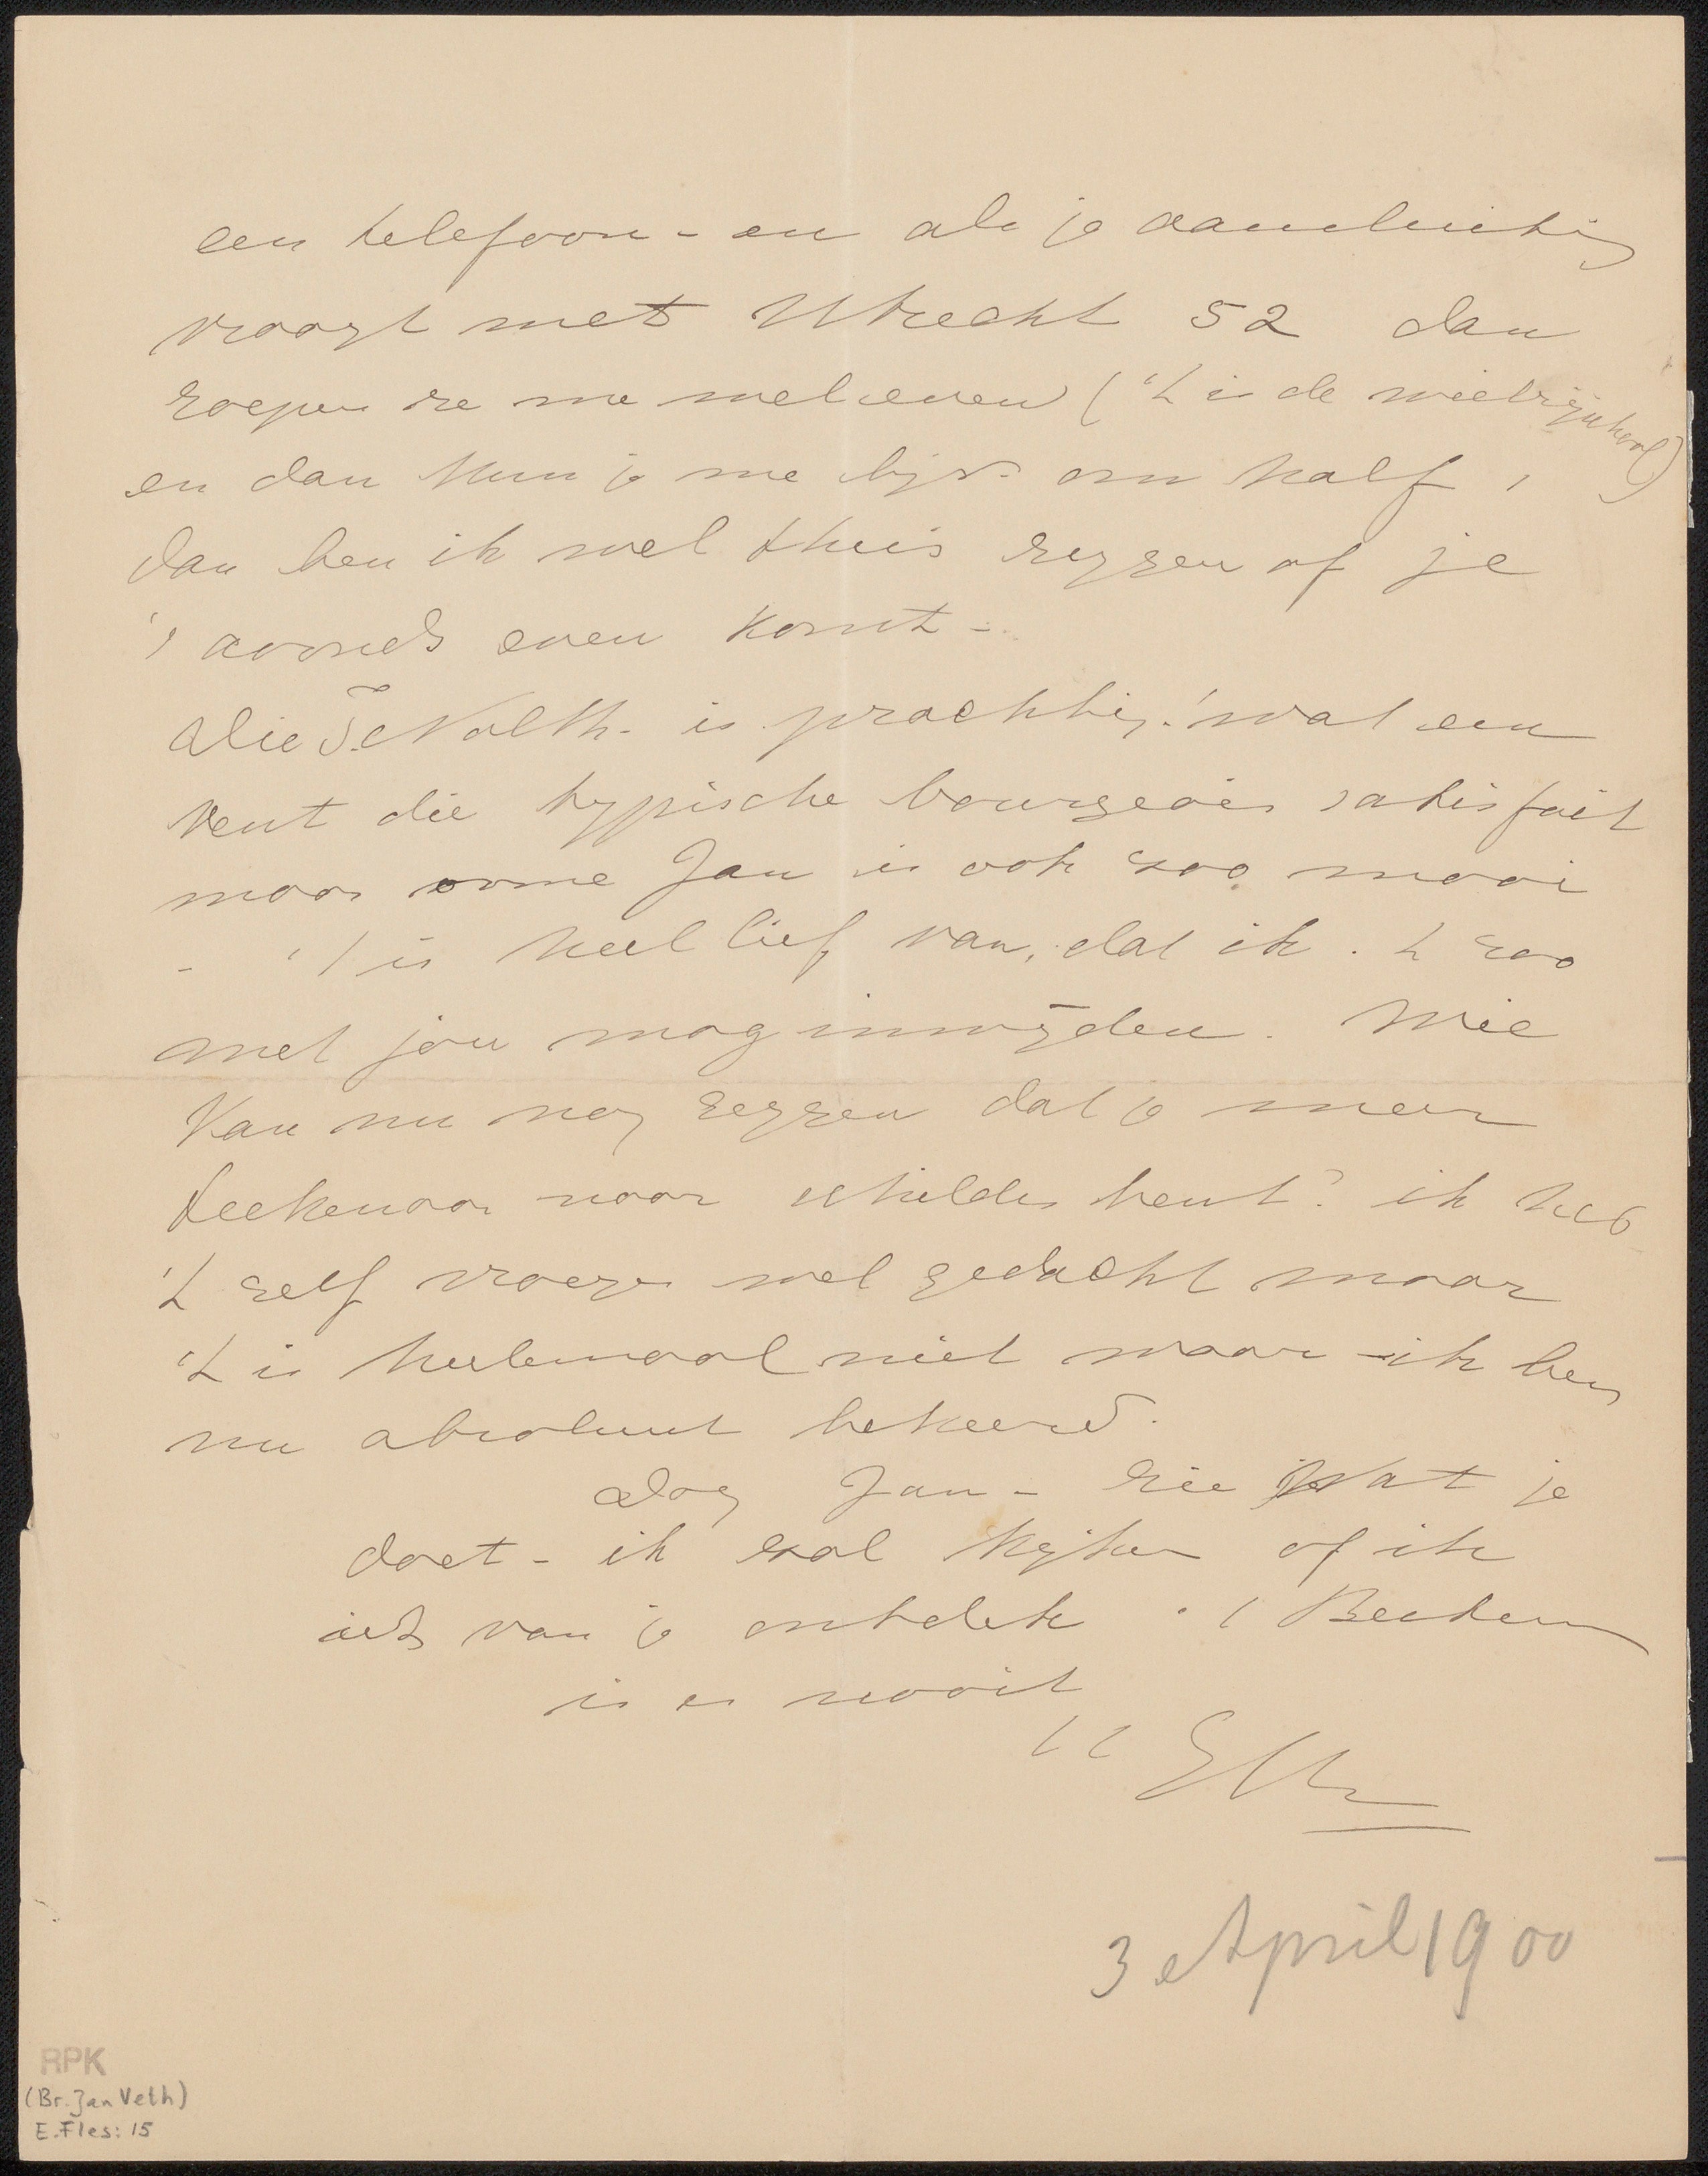 een telefoon - en als je aansluiting
vraagt met Utrecht 52 dan
roepen ze me wel even ('t is de
en dan kun je me bijv. om half 1
dan ben ik wel thuis zeggen of je
's avonds even komt -
die is prachtig! wat een
vent die typische bourgeois satisfait
maar oome Jan is ook zoo mooi
- 't is heel lief van, dat ik 't zoo
met jou mag inwijden. Wie
kan nu nog zeggen dat je meer
teekenaar naar schilder bent? ik heb
't zelf vroeger wel gedacht maar
't is heelemaal niet waar - ik ben
nu absoluut bekeerd.
Dag Jan - zie wat je
doet - ik zal kijken of ik
iets van je ontdek.
is er nooit
tt Etha
3 April 1900
RPK
(Br. Jan Veth)
E. Fles: 15